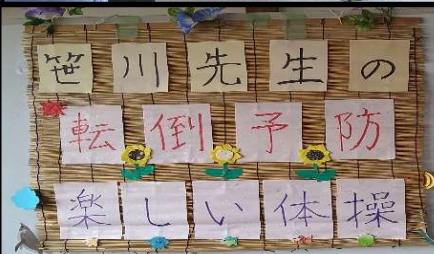 笹川先生の
転倒予防
楽しい体操